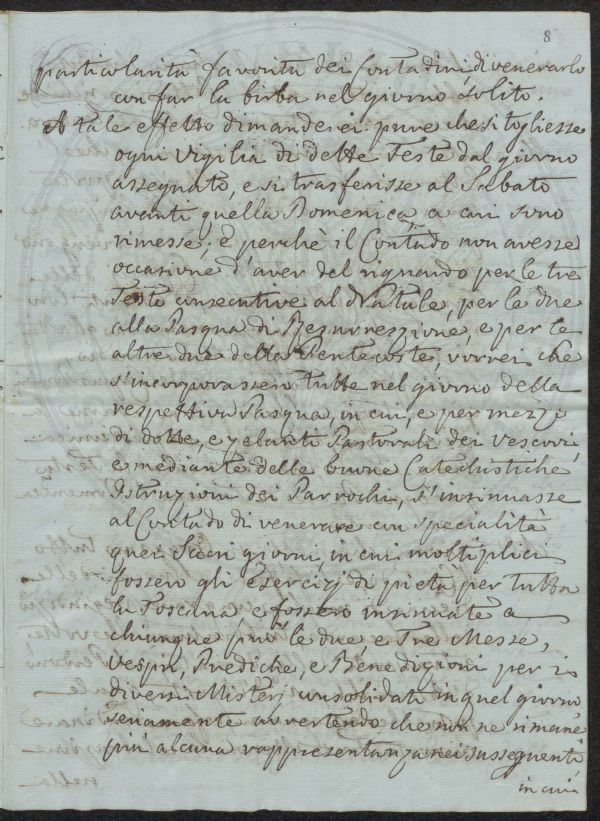 8
particolarità favorita dei Contadini, di venerarlo
con far la birba nel giorno solito.
A tale effetto dimanderei pure che si togliesse
ogni Vigilia di dette Feste dal giorno
assegnato, e si trasferisse al Sabato
avanti quella Domenica a cui sono
rimesse; E perchè il Contado non avesse
occasione d'aver del riguardo per le tre
Feste consecutive al Natale, per le due
alla Pasqua di Resurrezzione, e per le
altre due della Pentecoste, vorrei che
s'incorporassero tutte nel giorno della
respettiva Pasqua, in cui, e per mezzo
di dotte, e zelanti Pastorali dei Vescovi,
e mediante delle buone Catechistiche
Istruzioni dei Parrochi, s'insinuasse
al Contado di venerare con specialità
quei Sacri giorni, in cui moltiplici
fossero gli Esercizj di pietà per tutta
la Toscana, e fossero insinuate a
chiunque più le due, e Tre Messe,
Vespri, Prediche, e Benedizioni per i
diversi Misterj consolidati in quel giorno
seriamente avvertendo che non ne rimane
più alcuna rappresentanza nei susseguenti
in cui